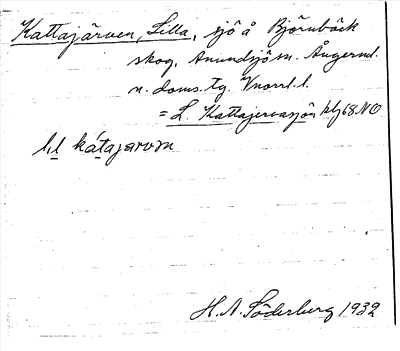 Kattajärven, Lilla, sjö å Björnbäck
skog, Anundsjö sn. Ångerml.
n. doms. tg. Vnorrl. l.
= L. Kattajervasjön blj 68 NO
lıl kátajarvɷn
H. A. Söderberg 1932